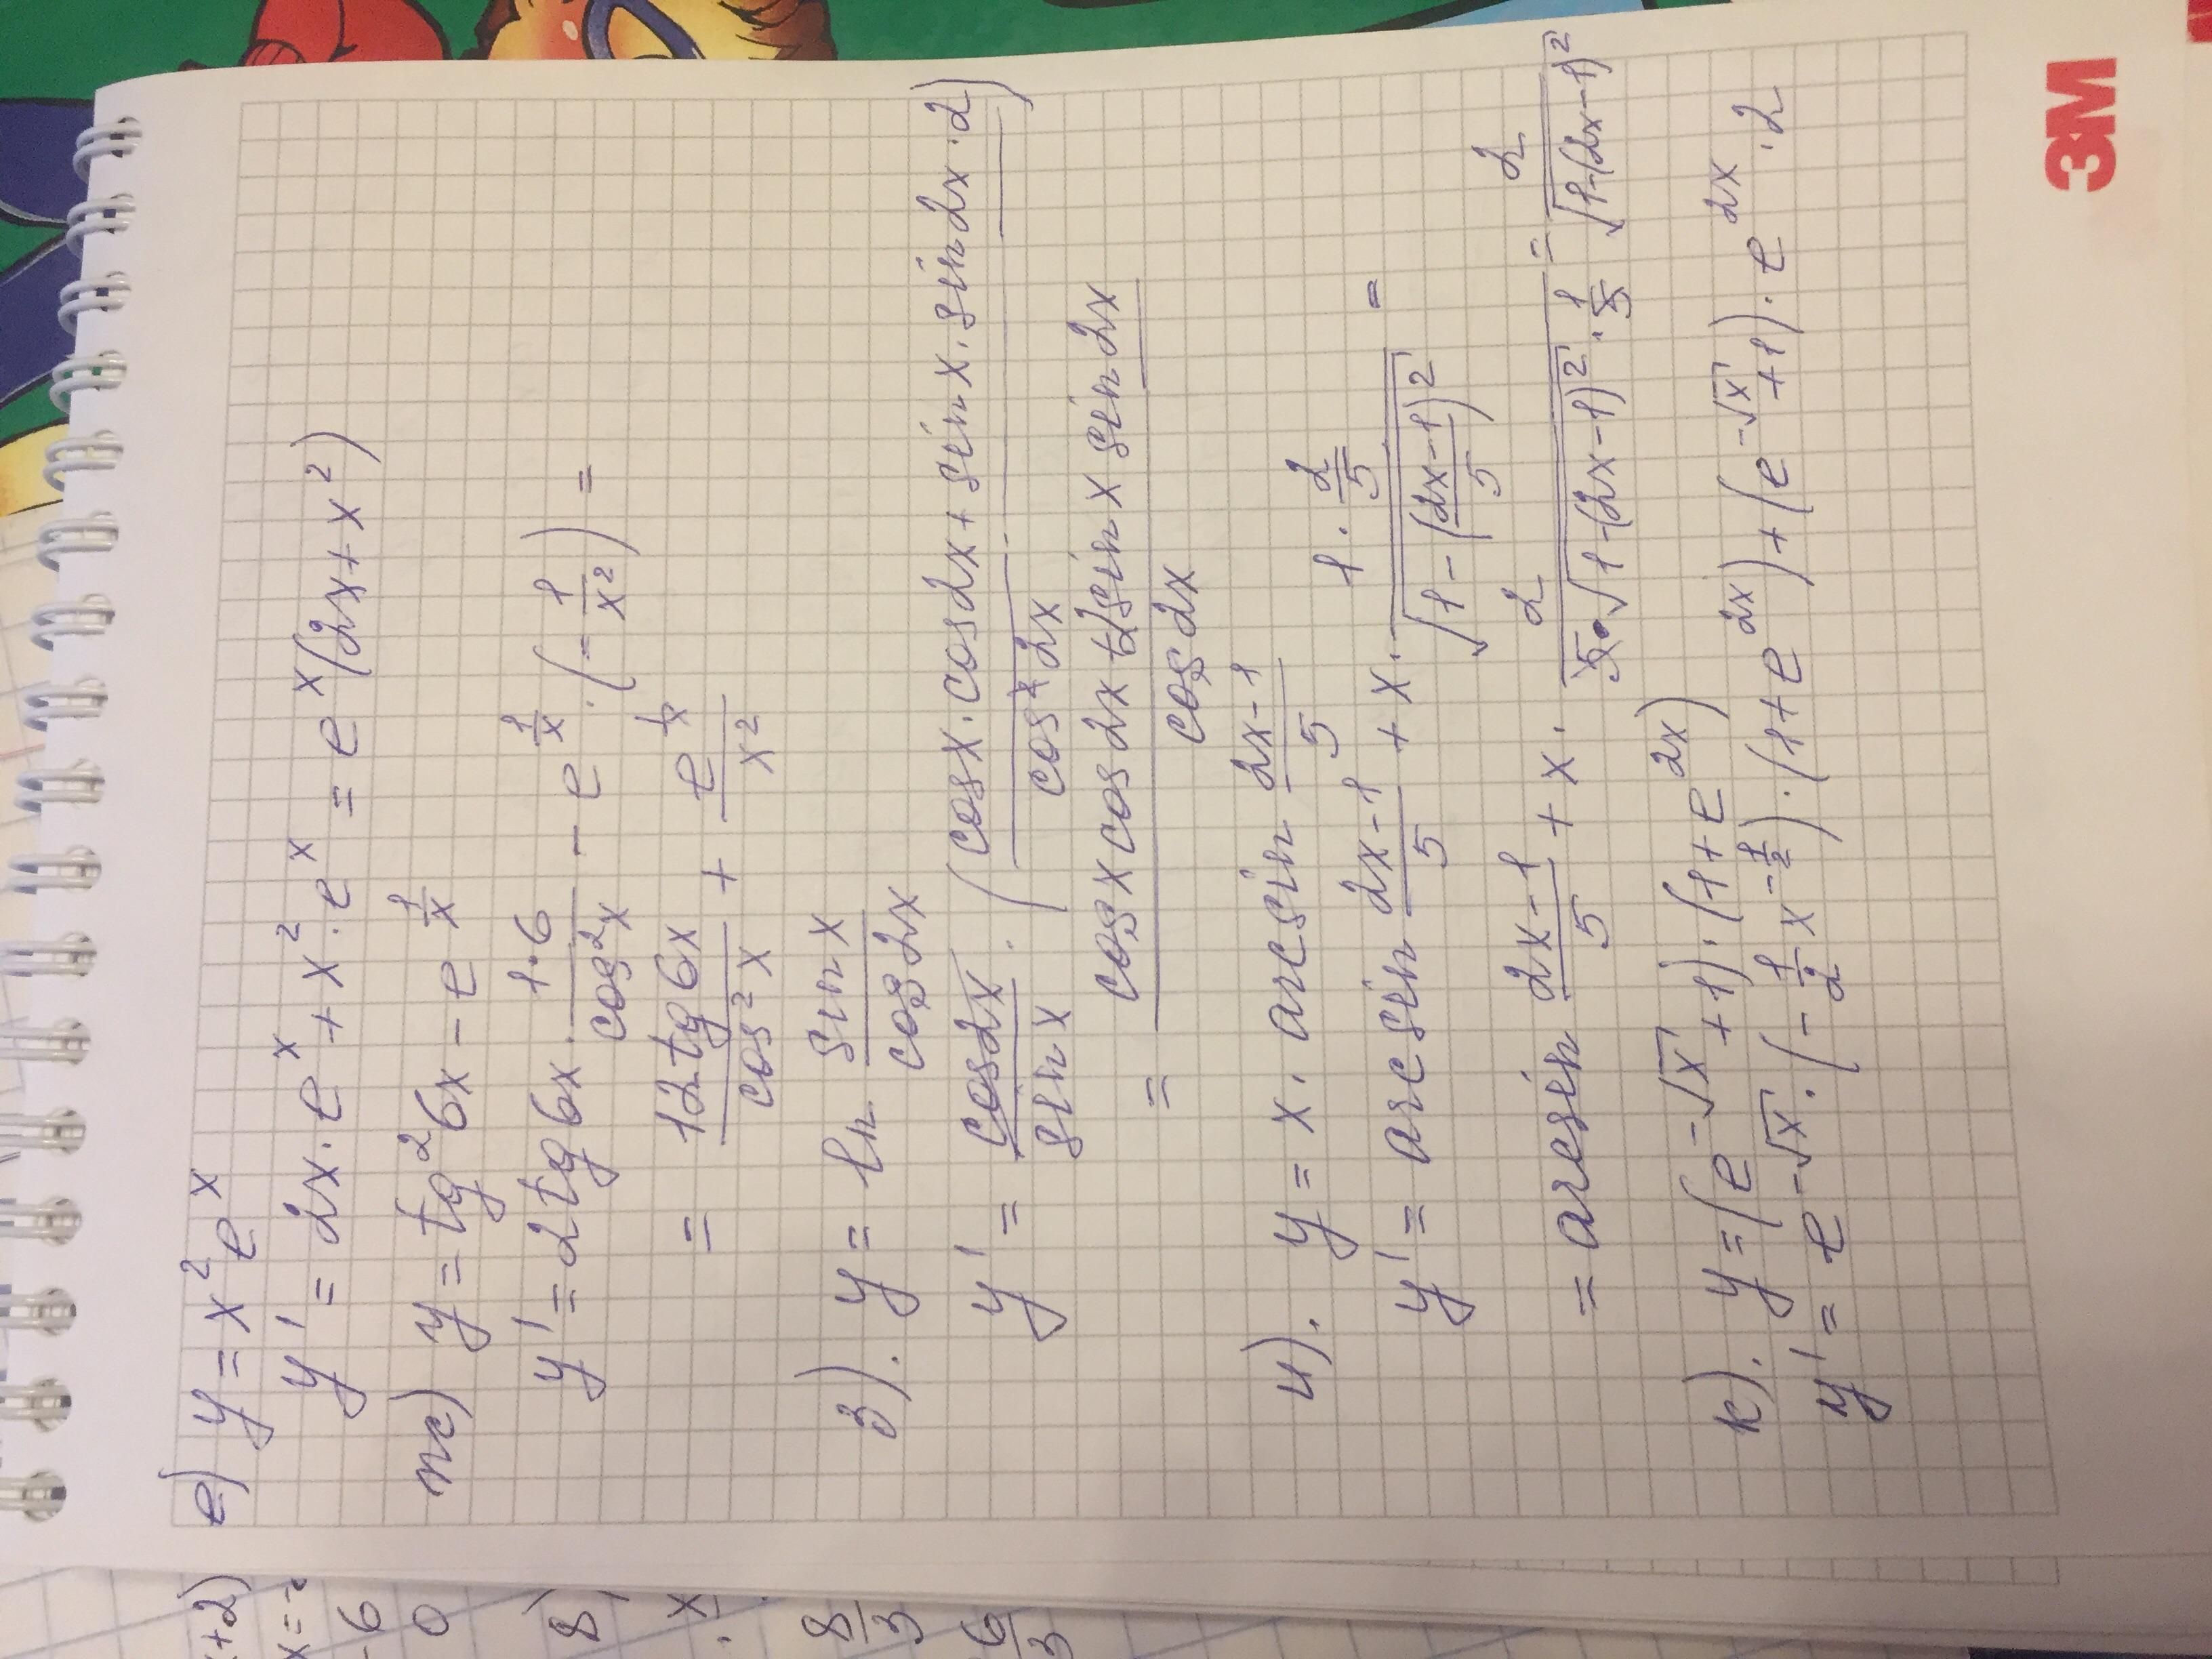 е) y = x² eˣ
y' = 2x · eˣ + x² · eˣ = eˣ(2x + x²)
ж) y = tg² 6x − e^(1/x)
y' = 2tg6x · (1·6)/(cos²x) − e^(1/x) · (−1/x²) =
= (12tg6x)/(cos²x) + e^(1/x)/x²
з). y = ln (sin x)/(cos2x)
y' = (cos2x)/(sin x) · ((cosx · cos2x + sin x · sin2x · 2)/(cos²2x))
= (cosx cos2x + 2sinx sin2x)/(cos2x)
и). y = x · arcsin (2x−1)/5
y' = arcsin (2x−1)/5 + x · (1 · 2/5)/√(1 − ((2x−1)/5)²) =
= arcsin (2x−1)/5 + x · 2/(5·√(1−(2x−1)²) · 1/5) = 2/√(1−(2x−1)²)
к). y = (e^(−√x) + 1) · (1 + e^(2x))
y' = e^(−√x) · (−1/2 x^(−1/2)) · (1 + e^(2x)) + (e^(−√x) + 1) · e^(2x) · 2
3M
x+2)
x = −
−6
0
8)
· x
8/3
6/3